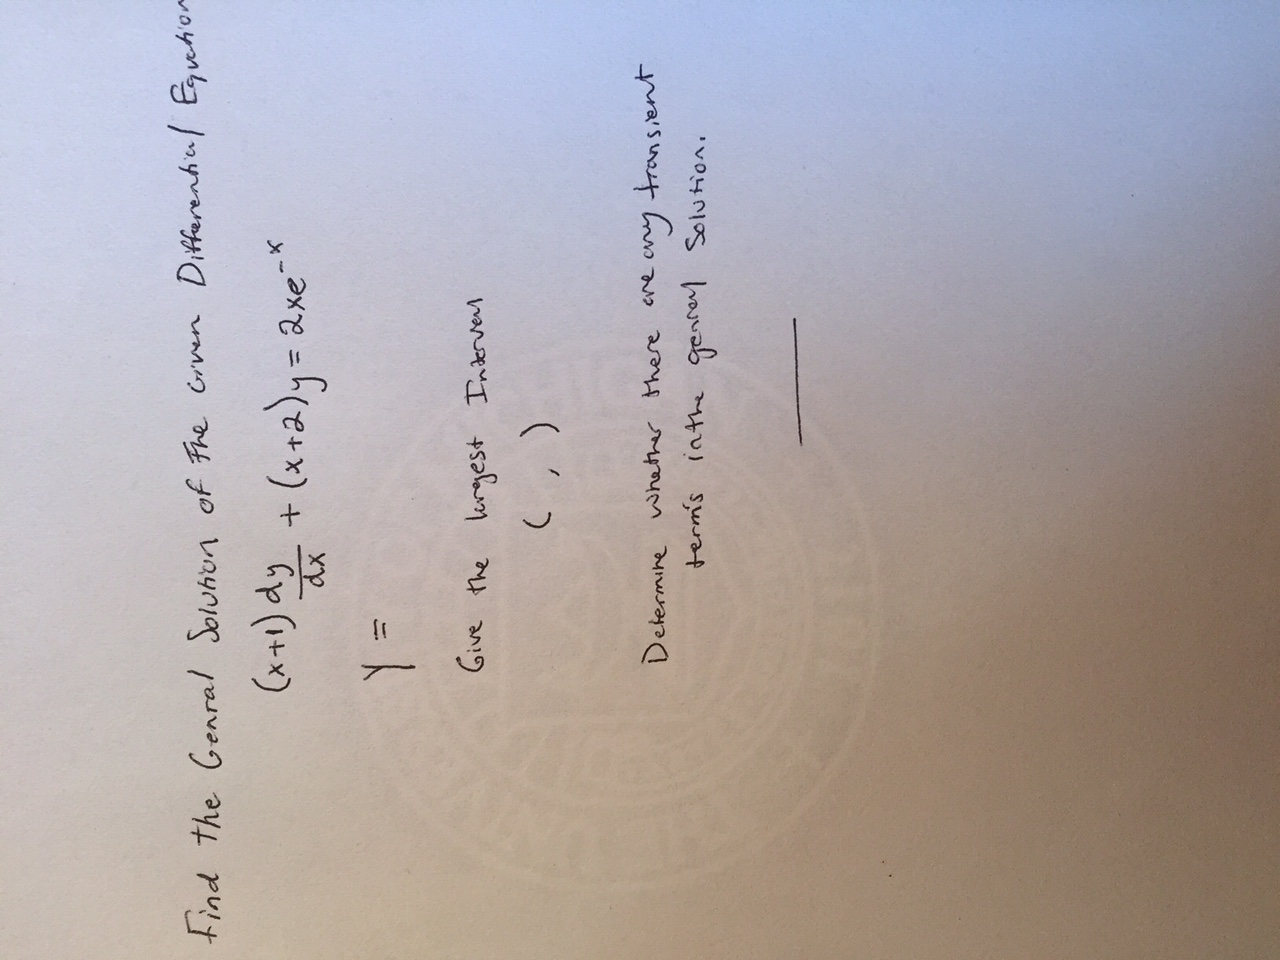 Find the Genral Solution of The Given Differential Equation
(x+1) dy/dx + (x+2)y = 2xe^-x
Y =
Give the largest Interval
( , )
Determine whether there are any transient
terms in the genral Solution.